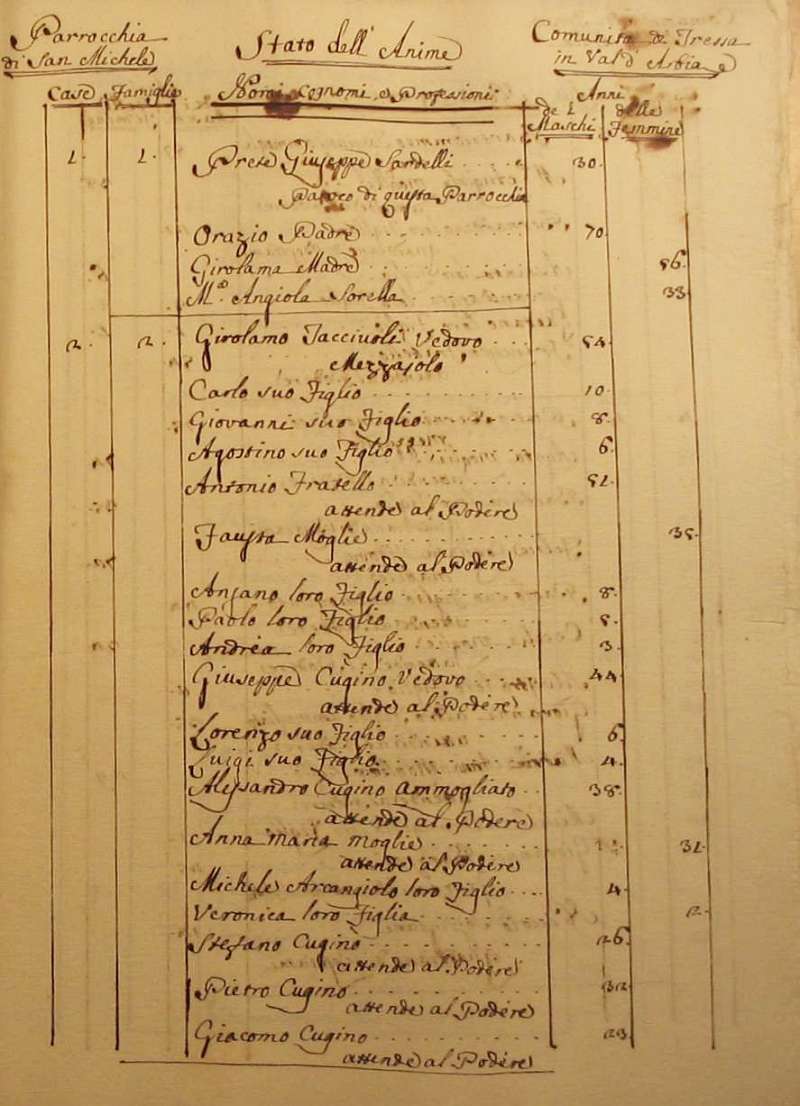 Parrocchia
di San Michele
Stato dell' Anime
Comunità di Tressa
in Val d' Arbia
Case Famiglie Nomi, Cognomi, e Professioni Anni
de i Maschi delle Femmine
1. 1. Prete Giuseppe Sardelli 30
Paroco di questa Parrocchia
Orazio Padre 70
Girolama Madre 56
M.ª Angiola Sorella 33
2. 2. Girolamo Vedovo 54
Mezzajolo
Carlo suo Figlio 10
Giovanni suo Figlio 8
Agostino suo Figlio 6
Antonio Fratello 51
attende al Podere
Fausta Moglie 35
attende al Podere
Ansano loro Figlio 8
Paolo loro Figlio 5
Andrea loro Figlio 3
Giuseppe Cugino Vedovo 44
attende al Podere
Lorenzo suo Figlio 6
Luigi suo Figlio 4
Alessandro Cugino Ammogliato 38
attende al Podere
Anna Maria Moglie 31
attende al Podere
Michele Arcangiolo loro Figlio 4
Veronica loro Figlia 2
Stefano Cugino 26
attende al Podere
Pietro Cugino 32
attende al Podere
Giacomo Cugino 23
attende al Podere